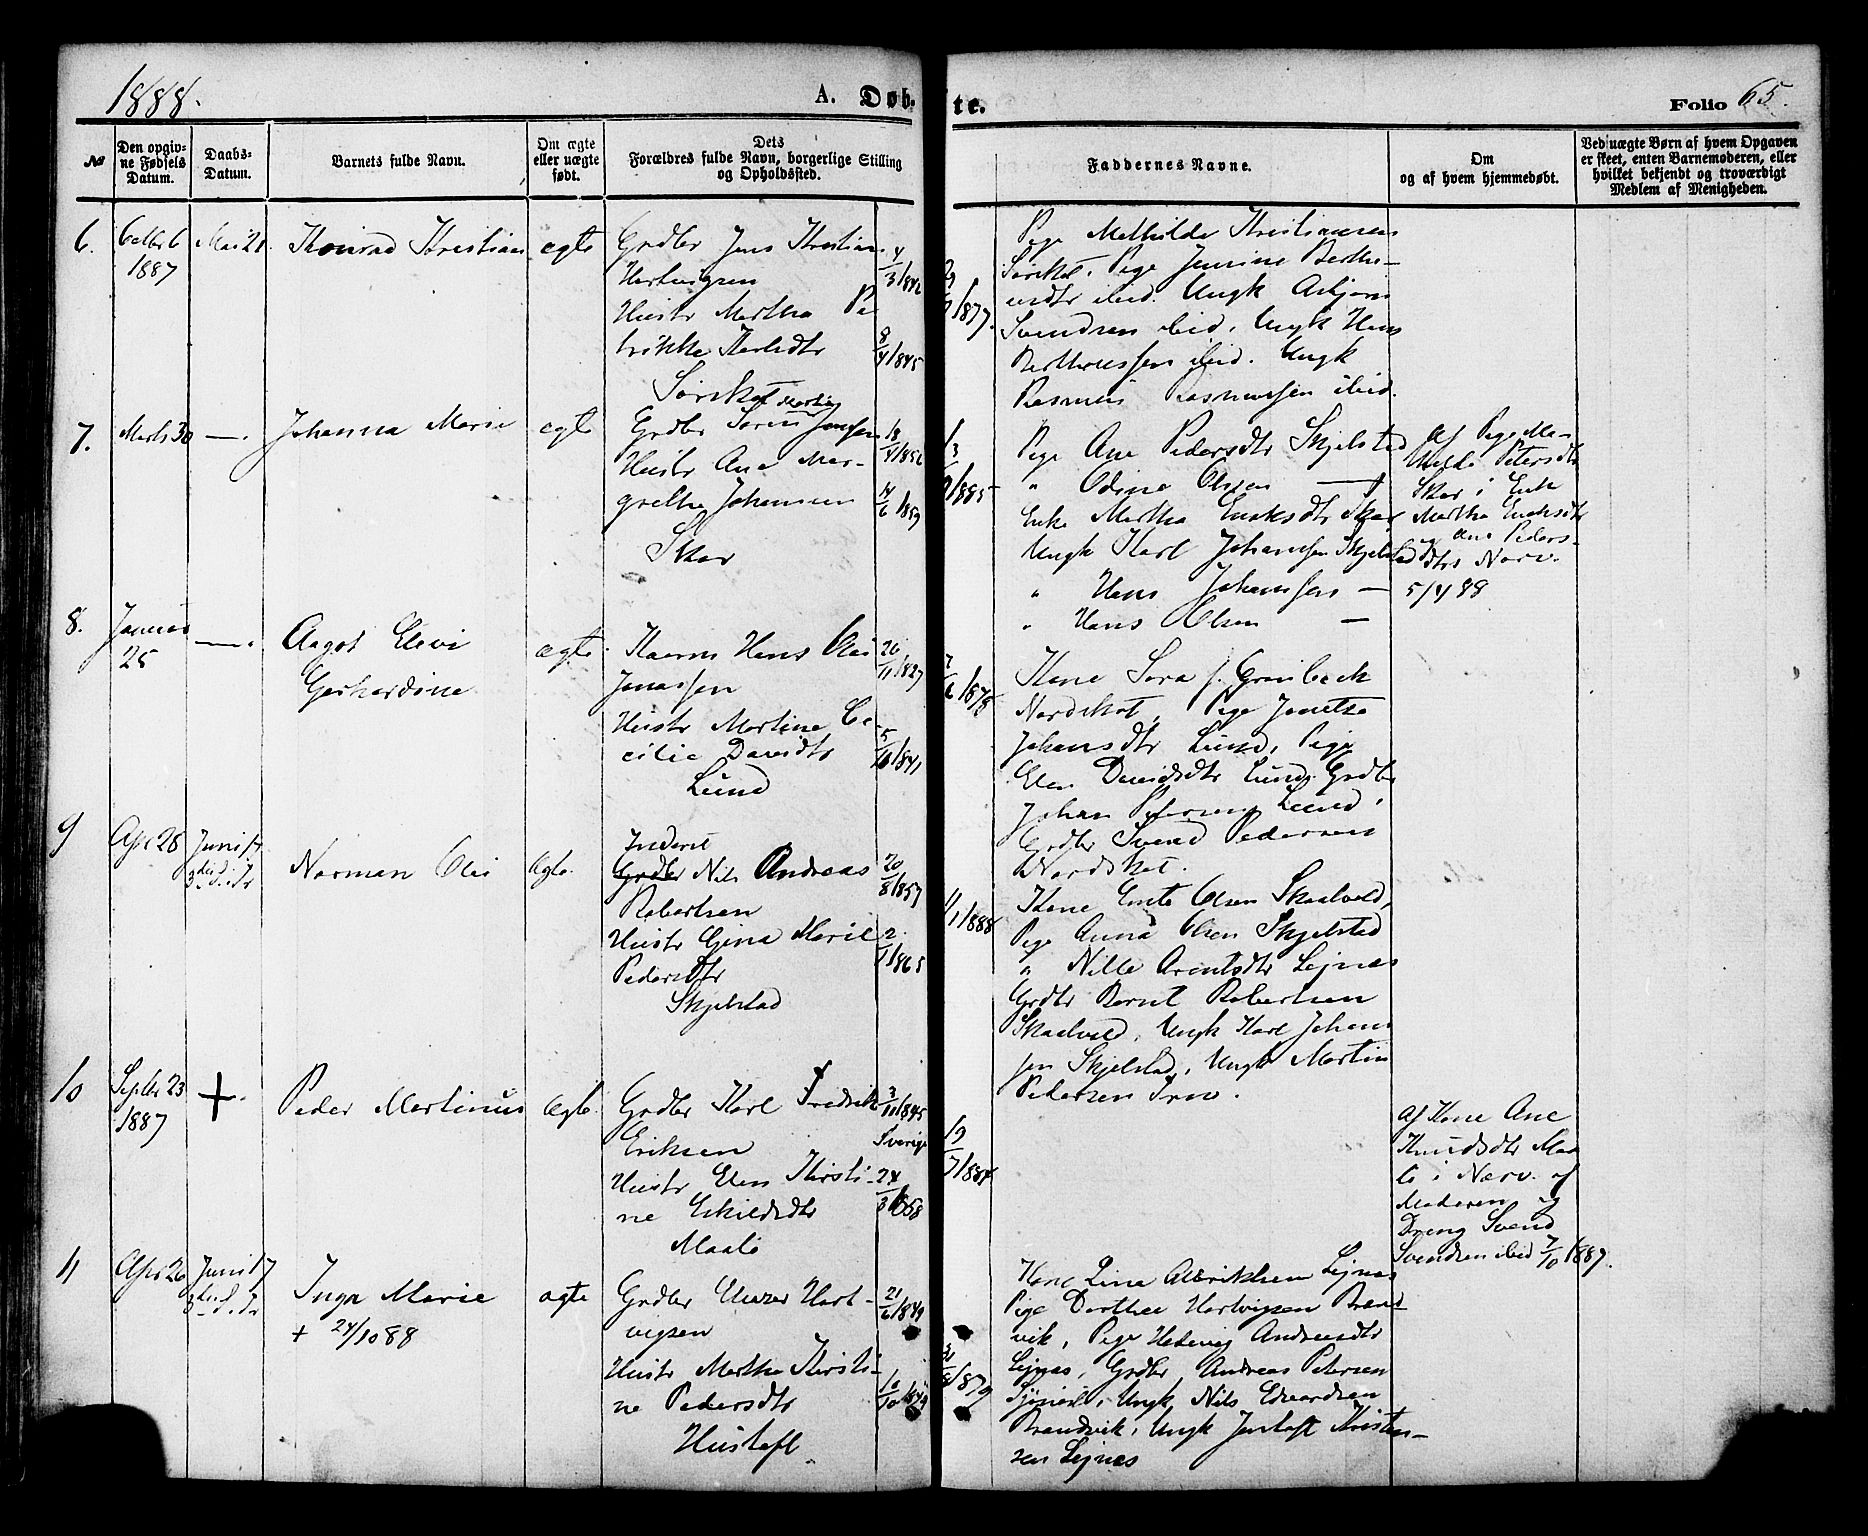 1888.
A. Døb-
te.
Folio 65.
No
Den opgiv-
ne Fødsels
Datum.
Daabs-
Datum.
Barnets fulde Navn.
Om ægte
eller uægte
født.
Dets
Forældres fulde Navn, borgerlige Stilling
og Opholdssted.
Faddernes Navne.
Om
og af hvem hjemmedøbt.
Ved uægte Børn af hvem Opgaven
er skeet, enten Barnemoderen, eller
hvilket bekjendt og troværdigt
Medlem af Menigheden.
6.
6
1887
Mai 21
Konrad Kristian
ægte
Grdbr Jens Kristian
Hartvigsen
Hustr Martha Pe
trikke
8/4 1845
Sørskot
/1877.
Pige Mathilde Kristiansen
Sørskot. Pige Jensine Berthe-
usdtr ibid. Ungk Asbjørn
Svendsen ibid, Ungk Hans
Bertheussen ibid. Ungk
Rasmus Rasmussen ibid.
7.
Marts 30
—.
Johanna Marie
ægte
Grdbr Søren Jensen
Hustr Ane Mar-
grethe Johansen
14/6 1859
Skar
/1885
Pige Ane Pedersdtr Skjelstad
" Odine Olsen —
Enke Martha Enoksdtr Skar
Ungk Karl Johansen Skjelstad
" Hans Johansen —
" Hans Olsen —
Af Pige Ma-
thilde Petersdtr
Skar i Enk
Martha Enoksdtr
og Ane Peders-
dtrs Nærv.
5/4 88
8.
Januar
25
—.
Aagot Elevi
Gerhardine
ægte
Kaarm Hans Olai
Jonassen
26/11 1827
Hustr Martine Ce-
cilie Davidtr
Lund
/1841
/1878
Kone Sara f. Grønbeck
Nordskot, Pige Jonetta
Johansdtr Lund, Pige
Elen Davidsdtr Lund. Grdbr
Johan Petersen Lund,
Grdbr Svend Pedersen
Nordskot.
9
Apr 28
Juni 17
Norman Olai
ægte.
Inderst
Grdbr Nils Andreas
Robertsen
20/8 1857
Hustr Gina Marie
Pedersdtr
1865
Skjelstad
/1888
Kone Ente Olsen Skaalvold,
Pige Anna Olsen Skjelstad
" Nille Arentsdtr Lejnes
Grdbr Bernt Robertsen
Skaalvold, Ungk Karl Johan
sen Skjelstad, Ungk Martin
Pedersen
10
Septbr 23
1887
+.
Peder Martinus
ægte.
Grdbr Karl Fredrik
Eriksen
1845
Sverige
Hustr Elen Kirsti-
ne Eskildsdtr
24/3 1858
Maalø
19/7 1884
Af Kone Ane
Knudsdtr Maa
lø i Nærv. af
Moderen og
Dreng Svend
Svendsen ibid 7/10 1887.
11
Apr 26
Juni 17
Inga Marie
+ 24/10 88
ægte
Grdbr Hart-
vigsen
21/6 1849
Hustr Martha Kirsti-
ne Pedersdtr
10/10 1849
Hustoft
/1879
Kone Lina Albriktsen Lejnes
Pige Dorthea Hartvigsen Brand-
vik, Pige Hedevig Andreasdtr
Lejnes, Grdbr Andreas Petersen
Ungk Nils Edvardsen
Brandvik, Ungk Kristen-
sen Lejnes